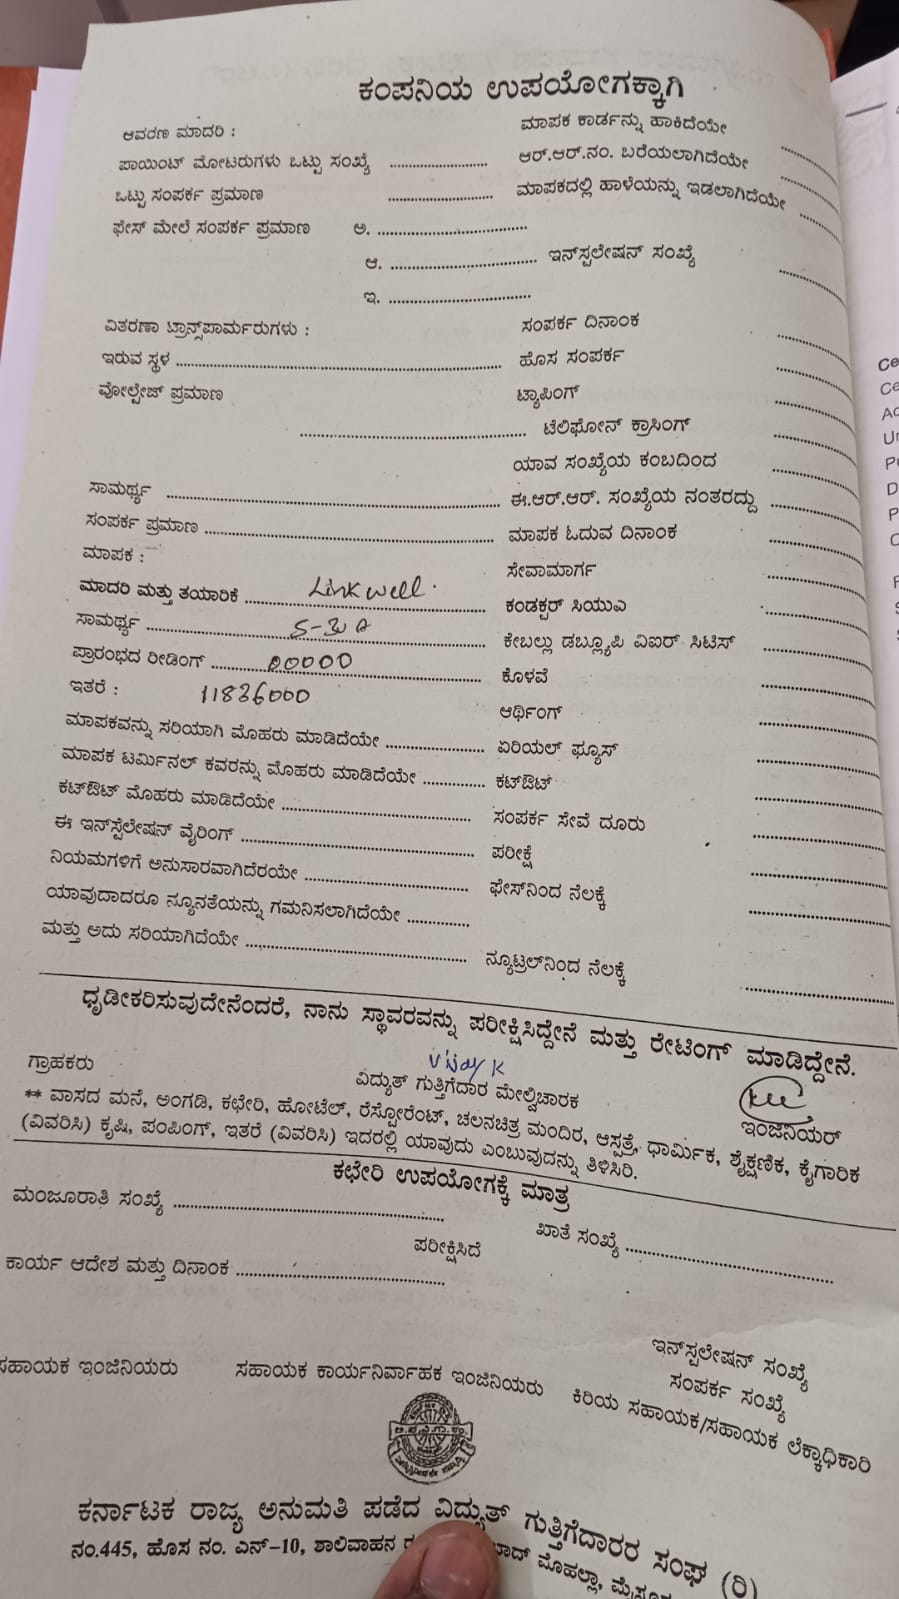 ಕಂಪನಿಯ ಉಪಯೋಗಕ್ಕಾಗಿ
ಆವರಣ ಮಾದರಿ : ಮಾಪಕ ಕಾರ್ಡನ್ನು ಹಾಕಿದೆಯೇ
ಪಾಯಿಂಟ್ ಮೋಟರುಗಳು ಒಟ್ಟು ಸಂಖ್ಯೆ ಆರ್.ಆರ್.ನಂ. ಬರೆಯಲಾಗಿದೆಯೇ
ಒಟ್ಟು ಸಂಪರ್ಕ ಪ್ರಮಾಣ ಮಾಪಕದಲ್ಲಿ ಹಾಳೆಯನ್ನು ಇಡಲಾಗಿದೆಯೇ
ಫೇಸ್ ಮೇಲೆ ಸಂಪರ್ಕ ಪ್ರಮಾಣ ಅ.
ಆ. ಇನ್‌ಸ್ಪಲೇಷನ್ ಸಂಖ್ಯೆ
ಇ.
ವಿತರಣಾ ಟ್ರಾನ್ಸ್‌ಪಾರ್ಮರುಗಳು : ಸಂಪರ್ಕ ದಿನಾಂಕ
ಇರುವ ಸ್ಥಳ ಹೊಸ ಸಂಪರ್ಕ
ವೋಲ್ಟೇಜ್ ಪ್ರಮಾಣ ಟ್ಯಾಪಿಂಗ್
ಟೆಲಿಫೋನ್ ಕ್ರಾಸಿಂಗ್
ಯಾವ ಸಂಖ್ಯೆಯ ಕಂಬದಿಂದ
ಸಾಮರ್ಥ್ಯ ಈ.ಆರ್.ಆರ್. ಸಂಖ್ಯೆಯ ನಂತರದ್ದು
ಸಂಪರ್ಕ ಪ್ರಮಾಣ ಮಾಪಕ ಓದುವ ದಿನಾಂಕ
ಮಾಪಕ : ಸೇವಾಮಾರ್ಗ
ಮಾದರಿ ಮತ್ತು ತಯಾರಿಕೆ Linkwell. ಕಂಡಕ್ಟರ್ ಸಿಯುಎ
ಸಾಮರ್ಥ್ಯ 5-30 A ಕೇಬಲ್ಲು ಡಬ್ಲ್ಯೂಪಿ ವಿಐರ್ ಸಿಟಿಸ್
ಪ್ರಾರಂಭದ ರೀಡಿಂಗ್ 00000 ಕೊಳವೆ
ಇತರೆ : 11836000 ಆರ್ಥಿಂಗ್
ಮಾಪಕವನ್ನು ಸರಿಯಾಗಿ ಮೊಹರು ಮಾಡಿದೆಯೇ ಏರಿಯಲ್ ಫ್ಯೂಸ್
ಮಾಪಕ ಟರ್ಮಿನಲ್ ಕವರನ್ನು ಮೊಹರು ಮಾಡಿದೆಯೇ ಕಟ್‌ಔಟ್
ಕಟ್‌ಔಟ್ ಮೊಹರು ಮಾಡಿದೆಯೇ ಸಂಪರ್ಕ ಸೇವೆ ದೂರು
ಈ ಇನ್‌ಸ್ಪೆಲೇಷನ್ ವೈರಿಂಗ್ ಪರೀಕ್ಷೆ
ನಿಯಮಗಳಿಗೆ ಅನುಸಾರವಾಗಿದೆರಯೇ ಫೇಸ್‌ನಿಂದ ನೆಲಕ್ಕೆ
ಯಾವುದಾದರೂ ನ್ಯೂನತೆಯನ್ನು ಗಮನಿಸಲಾಗಿದೆಯೇ
ಮತ್ತು ಅದು ಸರಿಯಾಗಿದೆಯೇ ನ್ಯೂಟ್ರಲ್‌ನಿಂದ ನೆಲಕ್ಕೆ
ಧೃಡೀಕರಿಸುವುದೇನೆಂದರೆ, ನಾನು ಸ್ಥಾವರವನ್ನು ಪರೀಕ್ಷಿಸಿದ್ದೇನೆ ಮತ್ತು ರೇಟಿಂಗ್ ಮಾಡಿದ್ದೇನೆ.
Vijay K
ಗ್ರಾಹಕರು ವಿದ್ಯುತ್ ಗುತ್ತಿಗೆದಾರ ಮೇಲ್ವಿಚಾರಕ ಇಂಜಿನಿಯರ್
** ವಾಸದ ಮನೆ, ಅಂಗಡಿ, ಕಛೇರಿ, ಹೋಟೆಲ್, ರೆಸ್ಟೋರೆಂಟ್, ಚಲನಚಿತ್ರ ಮಂದಿರ, ಆಸ್ಪತ್ರೆ, ಧಾರ್ಮಿಕ, ಶೈಕ್ಷಣಿಕ, ಕೈಗಾರಿಕ
(ವಿವರಿಸಿ) ಕೃಷಿ, ಪಂಪಿಂಗ್, ಇತರೆ (ವಿವರಿಸಿ) ಇದರಲ್ಲಿ ಯಾವುದು ಎಂಬುವುದನ್ನು ತಿಳಿಸಿರಿ.
ಕಛೇರಿ ಉಪಯೋಗಕ್ಕೆ ಮಾತ್ರ
ಮಂಜೂರಾತಿ ಸಂಖ್ಯೆ ಖಾತೆ ಸಂಖ್ಯೆ
ಪರೀಕ್ಷಿಸಿದೆ
ಕಾರ್ಯ ಆದೇಶ ಮತ್ತು ದಿನಾಂಕ
ಇನ್‌ಸ್ಪಲೇಷನ್ ಸಂಖ್ಯೆ
ಸಂಪರ್ಕ ಸಂಖ್ಯೆ
ಸಹಾಯಕ ಇಂಜಿನಿಯರು ಸಹಾಯಕ ಕಾರ್ಯನಿರ್ವಾಹಕ ಇಂಜಿನಿಯರು ಕಿರಿಯ ಸಹಾಯಕ/ಸಹಾಯಕ ಲೆಕ್ಕಾಧಿಕಾರಿ
ಕರ್ನಾಟಕ ರಾಜ್ಯ ಅನುಮತಿ ಪಡೆದ ವಿದ್ಯುತ್ ಗುತ್ತಿಗೆದಾರರ ಸಂಘ (ರಿ)
ನಂ.445, ಹೊಸ ನಂ. ಎನ್-10, ಶಾಲಿವಾಹನ ಮೊಹಲ್ಲಾ,